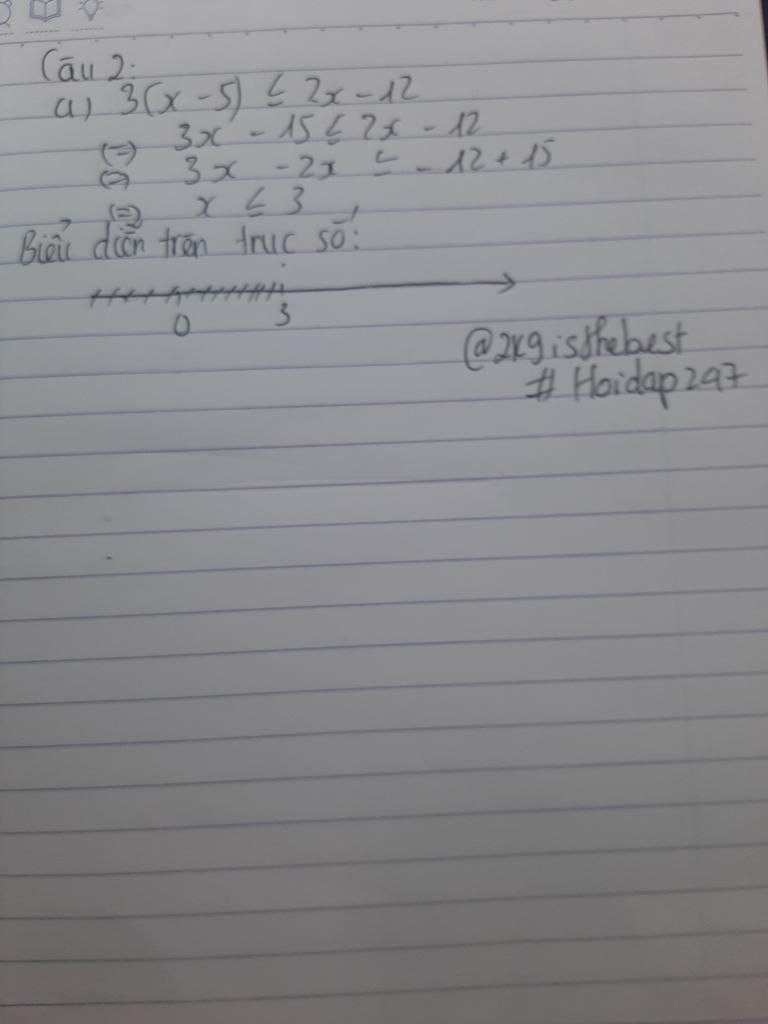 Câu 2:
a) 3(x - 5) ≤ 2x - 12
(=) 3x - 15 ≤ 2x - 12
(=) 3x - 2x ≤ - 12 + 15
(=) x ≤ 3
Biểu diễn trên trục số:
0 3
@2k9isthebest
# Hoidap247